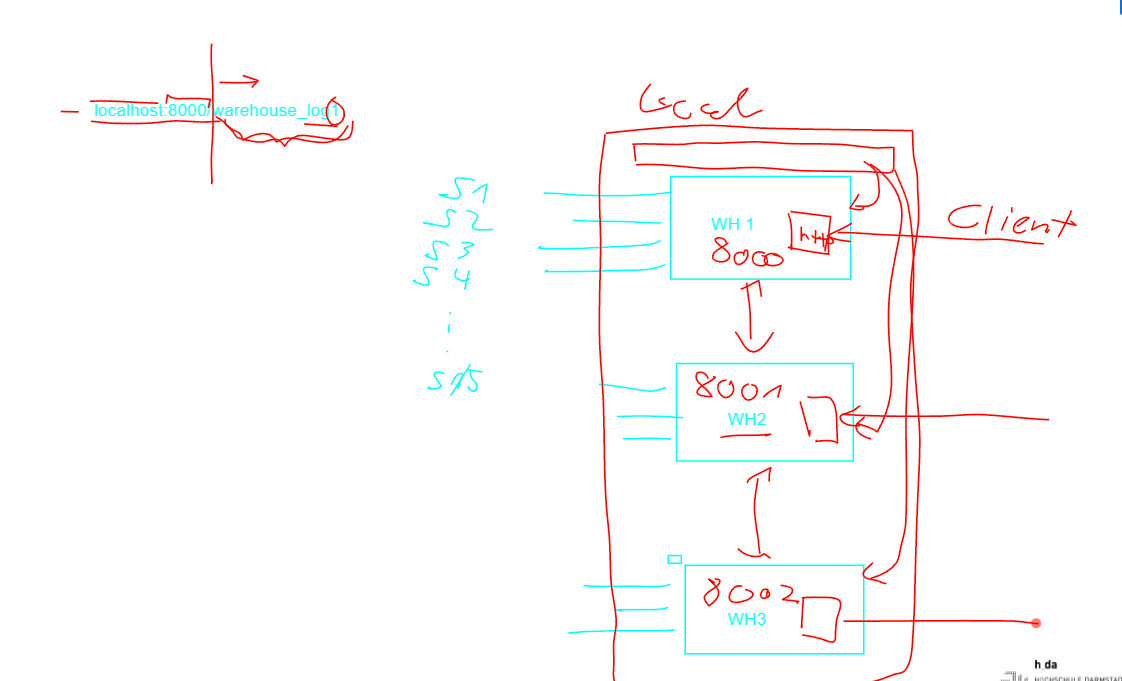 localhost:8000/warehouse_log1
Local
S1
S2
S3
S4
S15
WH 1
http
8000
Client
8001
WH2
8002
WH3
h_da
HOCHSCHULE DARMSTAD